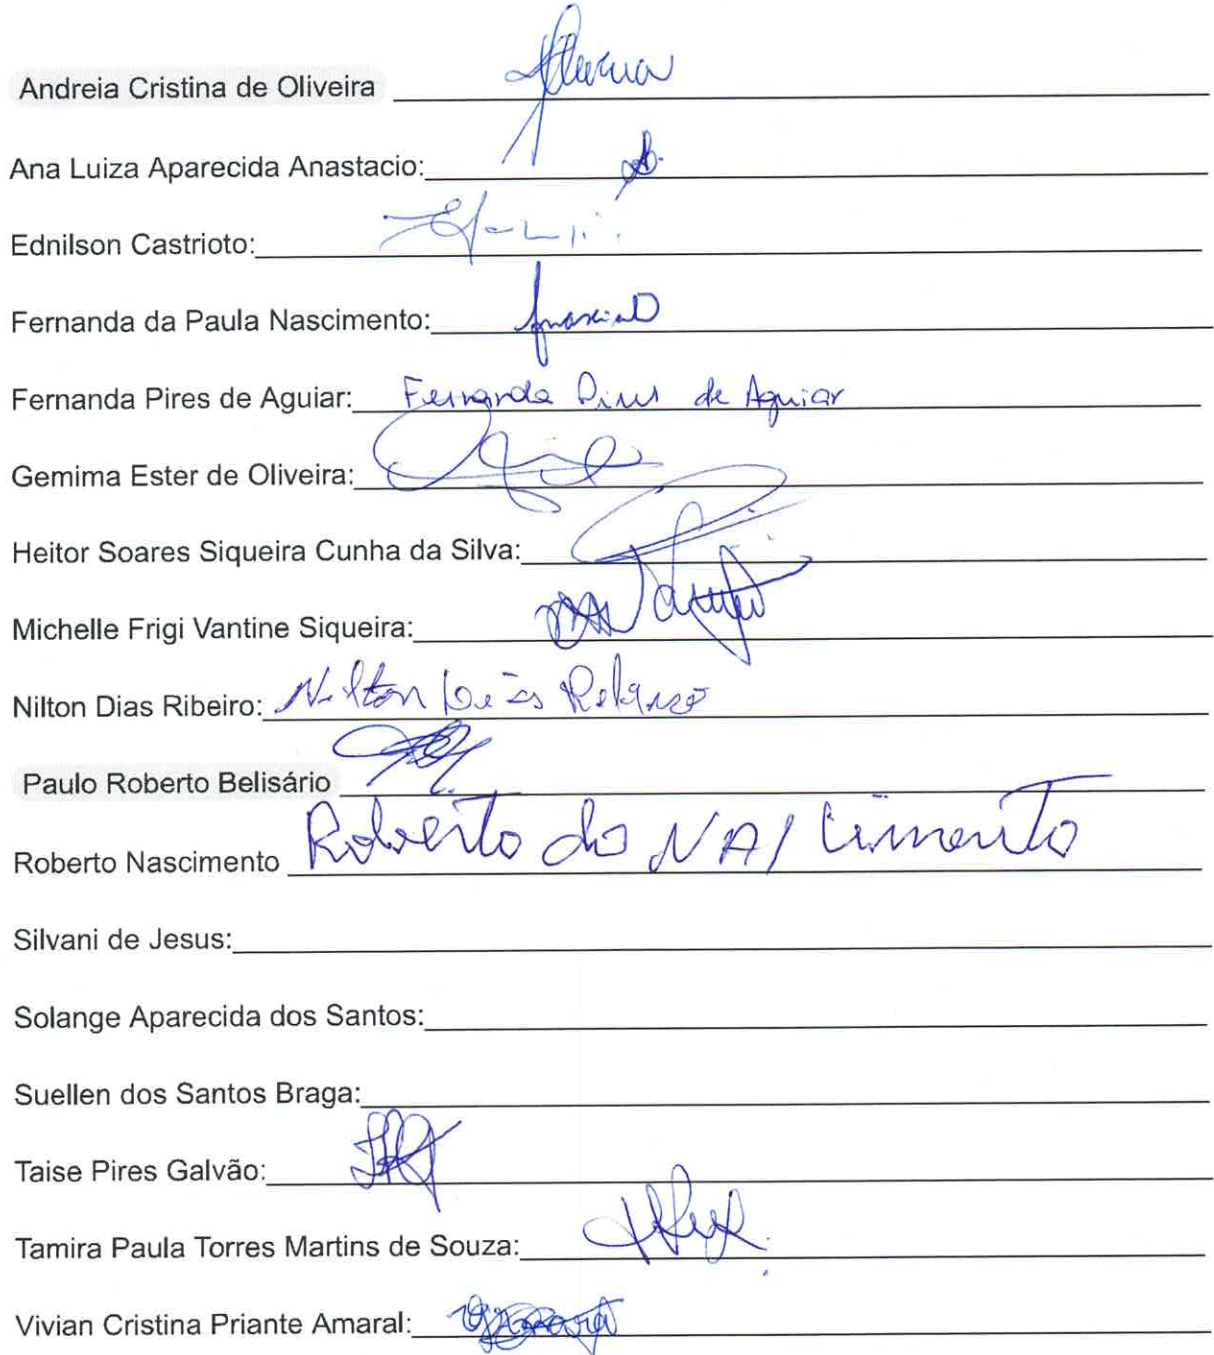 Andreia Cristina de Oliveira
Ana Luiza Aparecida Anastacio:
Ednilson Castrioto:
Fernanda da Paula Nascimento:
Fernanda Pires de Aguiar: Fernanda Pires de Aguiar
Gemima Ester de Oliveira:
Heitor Soares Siqueira Cunha da Silva:
Michelle Frigi Vantine Siqueira:
Nilton Dias Ribeiro: Nilton Dias Ribeiro
Paulo Roberto Belisário
Roberto Nascimento Roberto do NAscimento
Silvani de Jesus:
Solange Aparecida dos Santos:
Suellen dos Santos Braga:
Taise Pires Galvão:
Tamira Paula Torres Martins de Souza:
Vivian Cristina Priante Amaral: